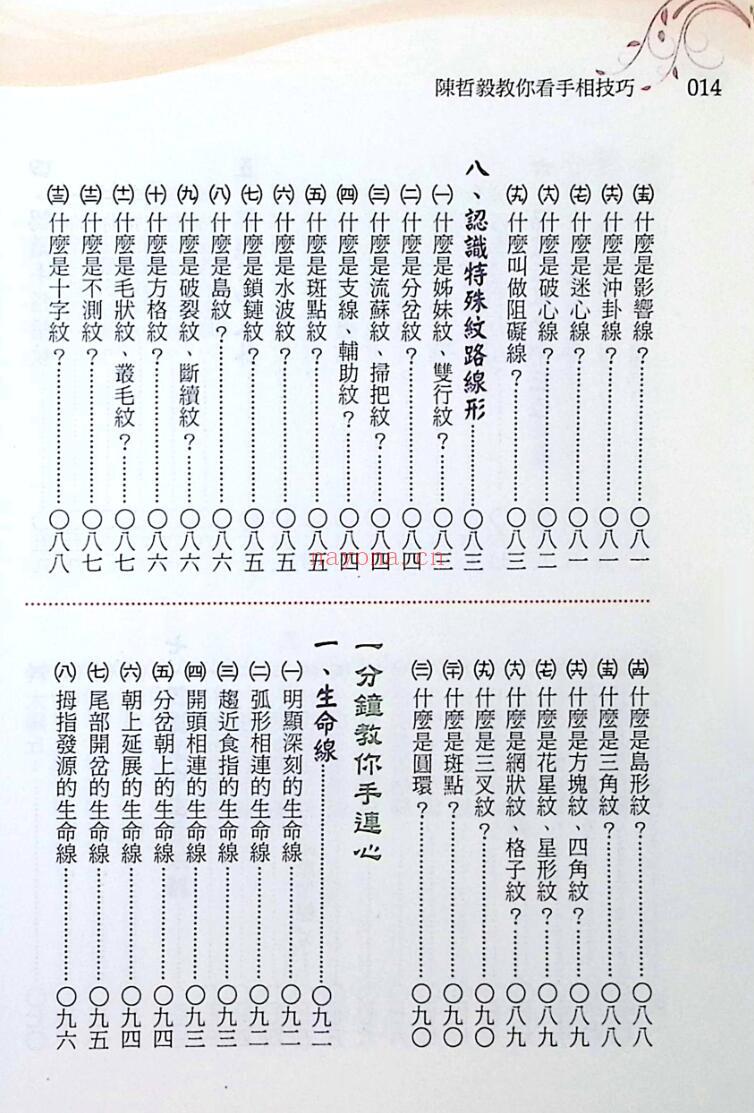 陳哲毅教你看手相技巧 014
㈩五 什麼是影響線？……〇八一
㈩六 什麼是沖卦線？……〇八一
㈩七 什麼是迷心線？……〇八一
㈩八 什麼是破心線？……〇八二
㈩九 什麼叫做阻礙線？……〇八三
八、認識特殊紋路線形……〇八三
㈠ 什麼是姊妹紋、雙行紋？……〇八三
㈡ 什麼是分岔紋？……〇八四
㈢ 什麼是流蘇紋、掃把紋？……〇八四
㈣ 什麼是支線、輔助紋？……〇八四
㈤ 什麼是斑點紋？……〇八五
㈥ 什麼是水波紋？……〇八五
㈦ 什麼是鎖鏈紋？……〇八五
㈧ 什麼是島紋？……〇八六
㈨ 什麼是破裂紋、斷續紋？……〇八六
㈩ 什麼是方格紋？……〇八六
㈩一 什麼是毛狀紋、叢毛紋？……〇八七
㈩二 什麼是不測紋？……〇八七
㈩三 什麼是十字紋？……〇八八
㈩四 什麼是島形紋？……〇八八
㈩五 什麼是三角紋？……〇八八
㈩六 什麼是方塊紋、四角紋？……〇八九
㈩七 什麼是花星紋、星形紋？……〇八九
㈩八 什麼是網狀紋、格子紋？……〇八九
㈩九 什麼是三叉紋？……〇九〇
㈡㈩ 什麼是斑點？……〇九〇
㈡㈩一 什麼是圓環？……〇九〇
一分鐘教你手連心
一、生命線……〇九二
㈠ 明顯深刻的生命線……〇九二
㈡ 弧形相連的生命線……〇九二
㈢ 趨近食指的生命線……〇九三
㈣ 開頭相連的生命線……〇九三
㈤ 分岔朝上的生命線……〇九四
㈥ 朝上延展的生命線……〇九四
㈦ 尾部開岔的生命線……〇九五
㈧ 拇指發源的生命線……〇九六
nayona.cn